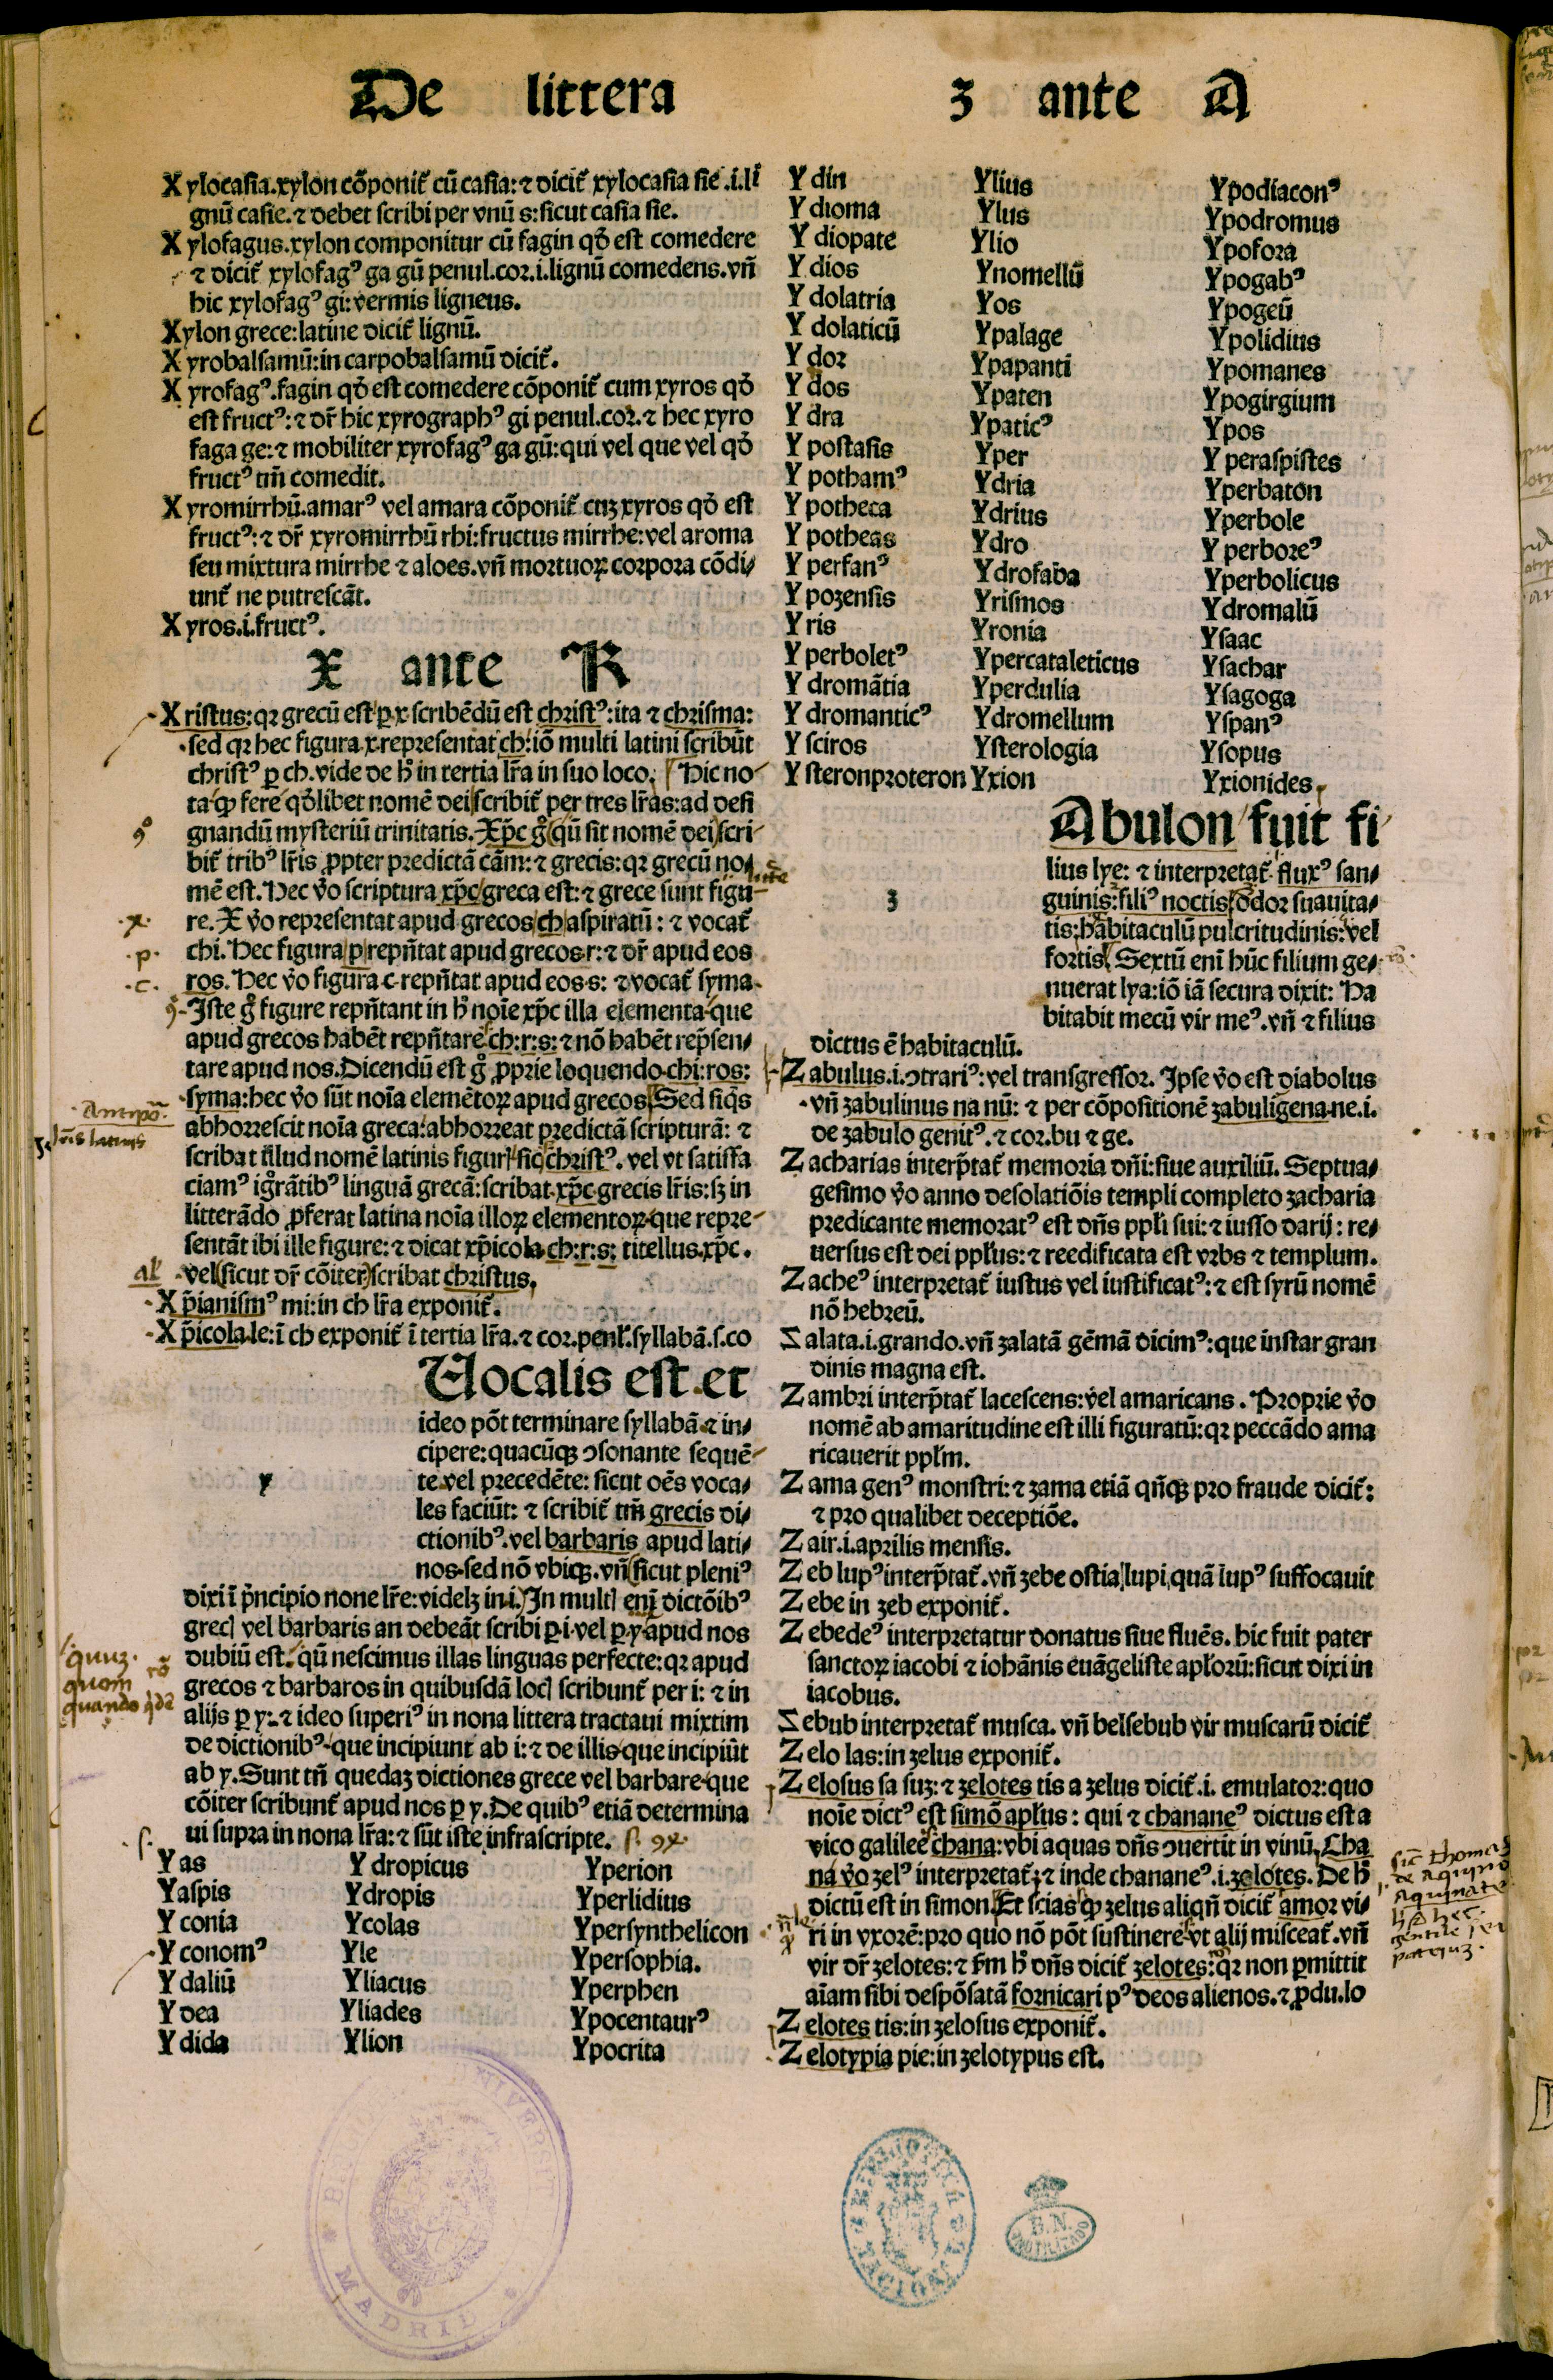 De littera ʒ ante A
Xylocasia.xylon cōponit̄ cū casia:⁊ dicit̄ xylocasia sie .i.li
gnū casie.⁊ debet scribi per vnū s:sicut casia sie.
Xylofagus.xylon componitur cū fagin qđ est comedere
⁊ dicit̄ xylofagꝰ ga gū penul.cor.i.lignū comedens.vñ
hic xylofagꝰ gi:vermis ligneus.
Xylon grece:latine dicit̄ lignū.
Xyrobalsamū:in carpobalsamū dicit̄.
Xyrofagꝰ.fagin qđ est comedere cōponit̄ cum xyros qđ
est fructꝰ:⁊ dr̄ hic xyrographꝰ gi penul.cor.⁊ hec xyro
faga ge:⁊ mobiliter xyrofagꝰ ga gū:qui vel que vel qđ
fructꝰ tm̄ comedit.
Xyromirrhū.amarꝰ vel amara cōponit̄ cuʒ xyros qđ est
fructꝰ:⁊ dr̄ xyromirrhū rhi:fructus mirrhe:vel aroma
seu mixtura mirrhe ⁊ aloes.vñ mortuoꝝ corpora cōdi/
unt̄ ne putrescāt.
Xyros.i.fructꝰ.
X ante R
Xristus:qꝛ grecū est ꝑ x scribēdū est christꝰ:ita ⁊ chrisma:
sed qꝛ hec figura.x.representat ch:iō multi latini scribūt
christꝰ ꝑ ch.vide de h̄ in tertia lr̄a in suo loco. Hic no
ta ꝙ fere qđlibet nomē dei scribit̄ per tres lr̄as:ad desi
gnandū mysteriū trinitatis. Xp̄c g̊ qū sit nomē dei scri
bit̄ tribꝰ lr̄is ꝓpter predictā cām:⁊ grecis:qꝛ grecū no/
mē est. Hec v̊o scriptura xp̄c greca est:⁊ grece sunt figu
re. X v̊o representat apud grecos ch aspiratū: ⁊ vocat̄
chi. Hec figura p repn̄tat apud grecos r:⁊ dr̄ apud eos
ros. Hec v̊o figura c repn̄tat apud eos s: ⁊ vocat̄ syma.
Iste g̊ figure repn̄tant in h̄ noīe xp̄c illa elementa que
apud grecos habēt repn̄tare ch:r:s:⁊ nō habēt rep̄sen/
tare apud nos. Dicendū est g̊ ꝓprie loquendo chi:ros:
syma:hec v̊o sūt noīa elemētoꝝ apud grecos. Sed siq̄s
abhorrescit noīa greca:abhorreat predictā scripturā: ⁊
scribat illud nomē latinis figurꝭ sic christꝰ. vel vt satisfa
ciamꝰ ig̊rātibꝰ linguā grecā:scribat xp̄c grecis lr̄is:sʒ in
litterādo ꝓferat latina noīa illoꝝ elementoꝝ que repre
sentāt ibi ille figure:⁊ dicat xp̄icola.ch:r:s: titellus.xp̄c.
vel sicut dr̄ cōiter scribat christus.
Xp̄ianismꝰ mi:in ch lr̄a exponit̄.
Xp̄icola.le:ī ch exponit̄ ī tertia lr̄a.⁊ cor.penl̄.syllabā.s.co
Uocalis est et
ideo pōt terminare syllabā ⁊ in/
cipere:quacūqꝫ ↄsonante sequē
te vel precedēte: sicut oēs voca/
y
les faciūt: ⁊ scribit̄ tm̄ grecis di/
ctionibꝰ.vel barbaris apud lati/
nos.sed nō vbiqꝫ.vñ sicut pleniꝰ
dixi ī p̄ncipio none lr̄e:videlʒ in i. In multꝭ enī dictōibꝰ
grecꝭ vel barbaris an debeāt scribi ꝑ i vel ꝑ y apud nos
dubiū est. qū nescimus illas linguas perfecte:qꝛ apud
grecos ⁊ barbaros in quibusdā locꝭ scribunt̄ per i: ⁊ in
alijs ꝑ y:⁊ ideo superiꝰ in nona littera tractaui mixtim
de dictionibꝰ que incipiunt ab i:⁊ de illis que incipiūt
ab y. Sunt tn̄ quedaʒ dictiones grece vel barbare que
cōiter scribunt̄ apud nos ꝑ y. De quibꝰ etiā determina
ui supra in nona lr̄a:⁊ sūt iste infrascripte.
Yas Ydropicus Yperion
Yaspis Ydropis Yperlidius
Yconia Ycolas Ypersynthelicon
Yconomꝰ Yle Ypersophia.
Ydaliū Yliacus Yperphen
Ydea Yliades Ypocentaurꝰ
Ydida Ylion Ypocrita
Ydin Ylius Ypodiaconꝰ
Ydioma Ylus Ypodromus
Ydiopate Ylio Ypofora
Ydios Ynomellū Ypogabꝰ
Ydolatria Yos Ypogeū
Ydolaticū Ypalage Ypolidius
Ydor Ypapanti Ypomanes
Ydos Ypaten Ypogirgium
Ydra Ypaticꝰ Ypos
Ypostasis Yper Yperaspistes
Ypothamꝰ Ydria Yperbaton
Ypotheca Ydrius Yperbole
Ypotheas Ydro Yperboreꝰ
Yperfanꝰ Ydrofaba Yperbolicus
Ypozensis Yrismos Ydromalū
Yris Yronia Ysaac
Yperboletꝰ Ypercataleticus Ysachar
Ydromātia Yperdulia Ysagoga
Ydromanticꝰ Ydromellum Yspanꝰ
Ysciros Ysterologia Ysopus
Ysteronproteron Yxion Yxionides
Abulon fuit fi
lius lye: ⁊ interpretat̄ fluxꝰ san/
ʒ
guinis:filiꝰ noctis odor suauita/
tis:habitaculū pulcritudinis:vel
fortis. Sextū enī hūc filium ge/
nuerat lya:iō iā secura dixit: Ha
bitabit mecū vir meꝰ.vñ ⁊ filius
dictus ē habitaculū.
Zabulus.i.ↄtrariꝰ:vel transgressor. Ipse v̊o est diabolus
vñ zabulinus na nū: ⁊ per cōpositionē zabuligena.ne.i.
de zabulo genitꝰ.⁊ cor.bu ⁊ ge.
Zacharias interp̄tat̄ memoria dn̄i:siue auxiliū. Septua/
gesimo v̊o anno desolatiōis templi completo zacharia
predicante memoratꝰ est dn̄s ppl̄i sui:⁊ iusso darij: re/
uersus est dei ppl̄us:⁊ reedificata est vrbs ⁊ templum.
Zacheꝰ interpretat̄ iustus vel iustificatꝰ:⁊ est syrū nomē
nō hebreū.
Zalata.i.grando.vñ zalatā gēmā dicimꝰ:que instar gran
dinis magna est.
Zambri interp̄tat̄ lacescens:vel amaricans. Proprie v̊o
nomē ab amaritudine est illi figuratū:qꝛ peccādo ama
ricauerit ppl̄m.
Zama genꝰ monstri:⁊ zama etiā qn̄qꝫ pro fraude dicit̄:
⁊ pro qualibet deceptiōe.
Zair.i.aprilis mensis.
Zeb lupꝰ interp̄tat̄.vñ zebe ostia lupi quā lupꝰ suffocauit
Zebe in zeb exponit̄.
Zebedeꝰ interpretatur donatus siue fluēs. hic fuit pater
sanctoꝝ iacobi ⁊ iohānis euāgeliste apl̄orū:sicut dixi in
iacobus.
Zebub interpretat̄ musca. vñ belsebub vir muscarū dicit̄
Zelo las:in zelus exponit̄.
Zelosus sa suʒ:⁊ zelotes tis a zelus dicit̄.i. emulator:quo
noīe dictꝰ est simō apl̄us: qui ⁊ chananeꝰ dictus est a
vico galilee chana:vbi aquas dn̄s ↄuertit in vinū. Cha
na v̊o zelꝰ interpretat̄:⁊ inde chananeꝰ.i.zelotes. De h̄
dictū est in simon. Et scias ꝙ zelus aliqn̄ dicit̄ amor vi/
ri in vxorē:pro quo nō pōt sustinere vt alij misceat̄.vñ
vir dr̄ zelotes:⁊ ẜm h̄ dn̄s dicit̄ zelotes:qꝛ non ꝑmittit
aīam sibi despōsatā fornicari pꝰ deos alienos.⁊ ꝓdu.lo
Zelotes tis:in zelosus exponit̄.
Zelotypia pie:in zelotypus est.
.x.
.p.
.c.
al̄
quuʒ.
quom
sic thomas
de aquino
aquinate
MADRID
B.N.